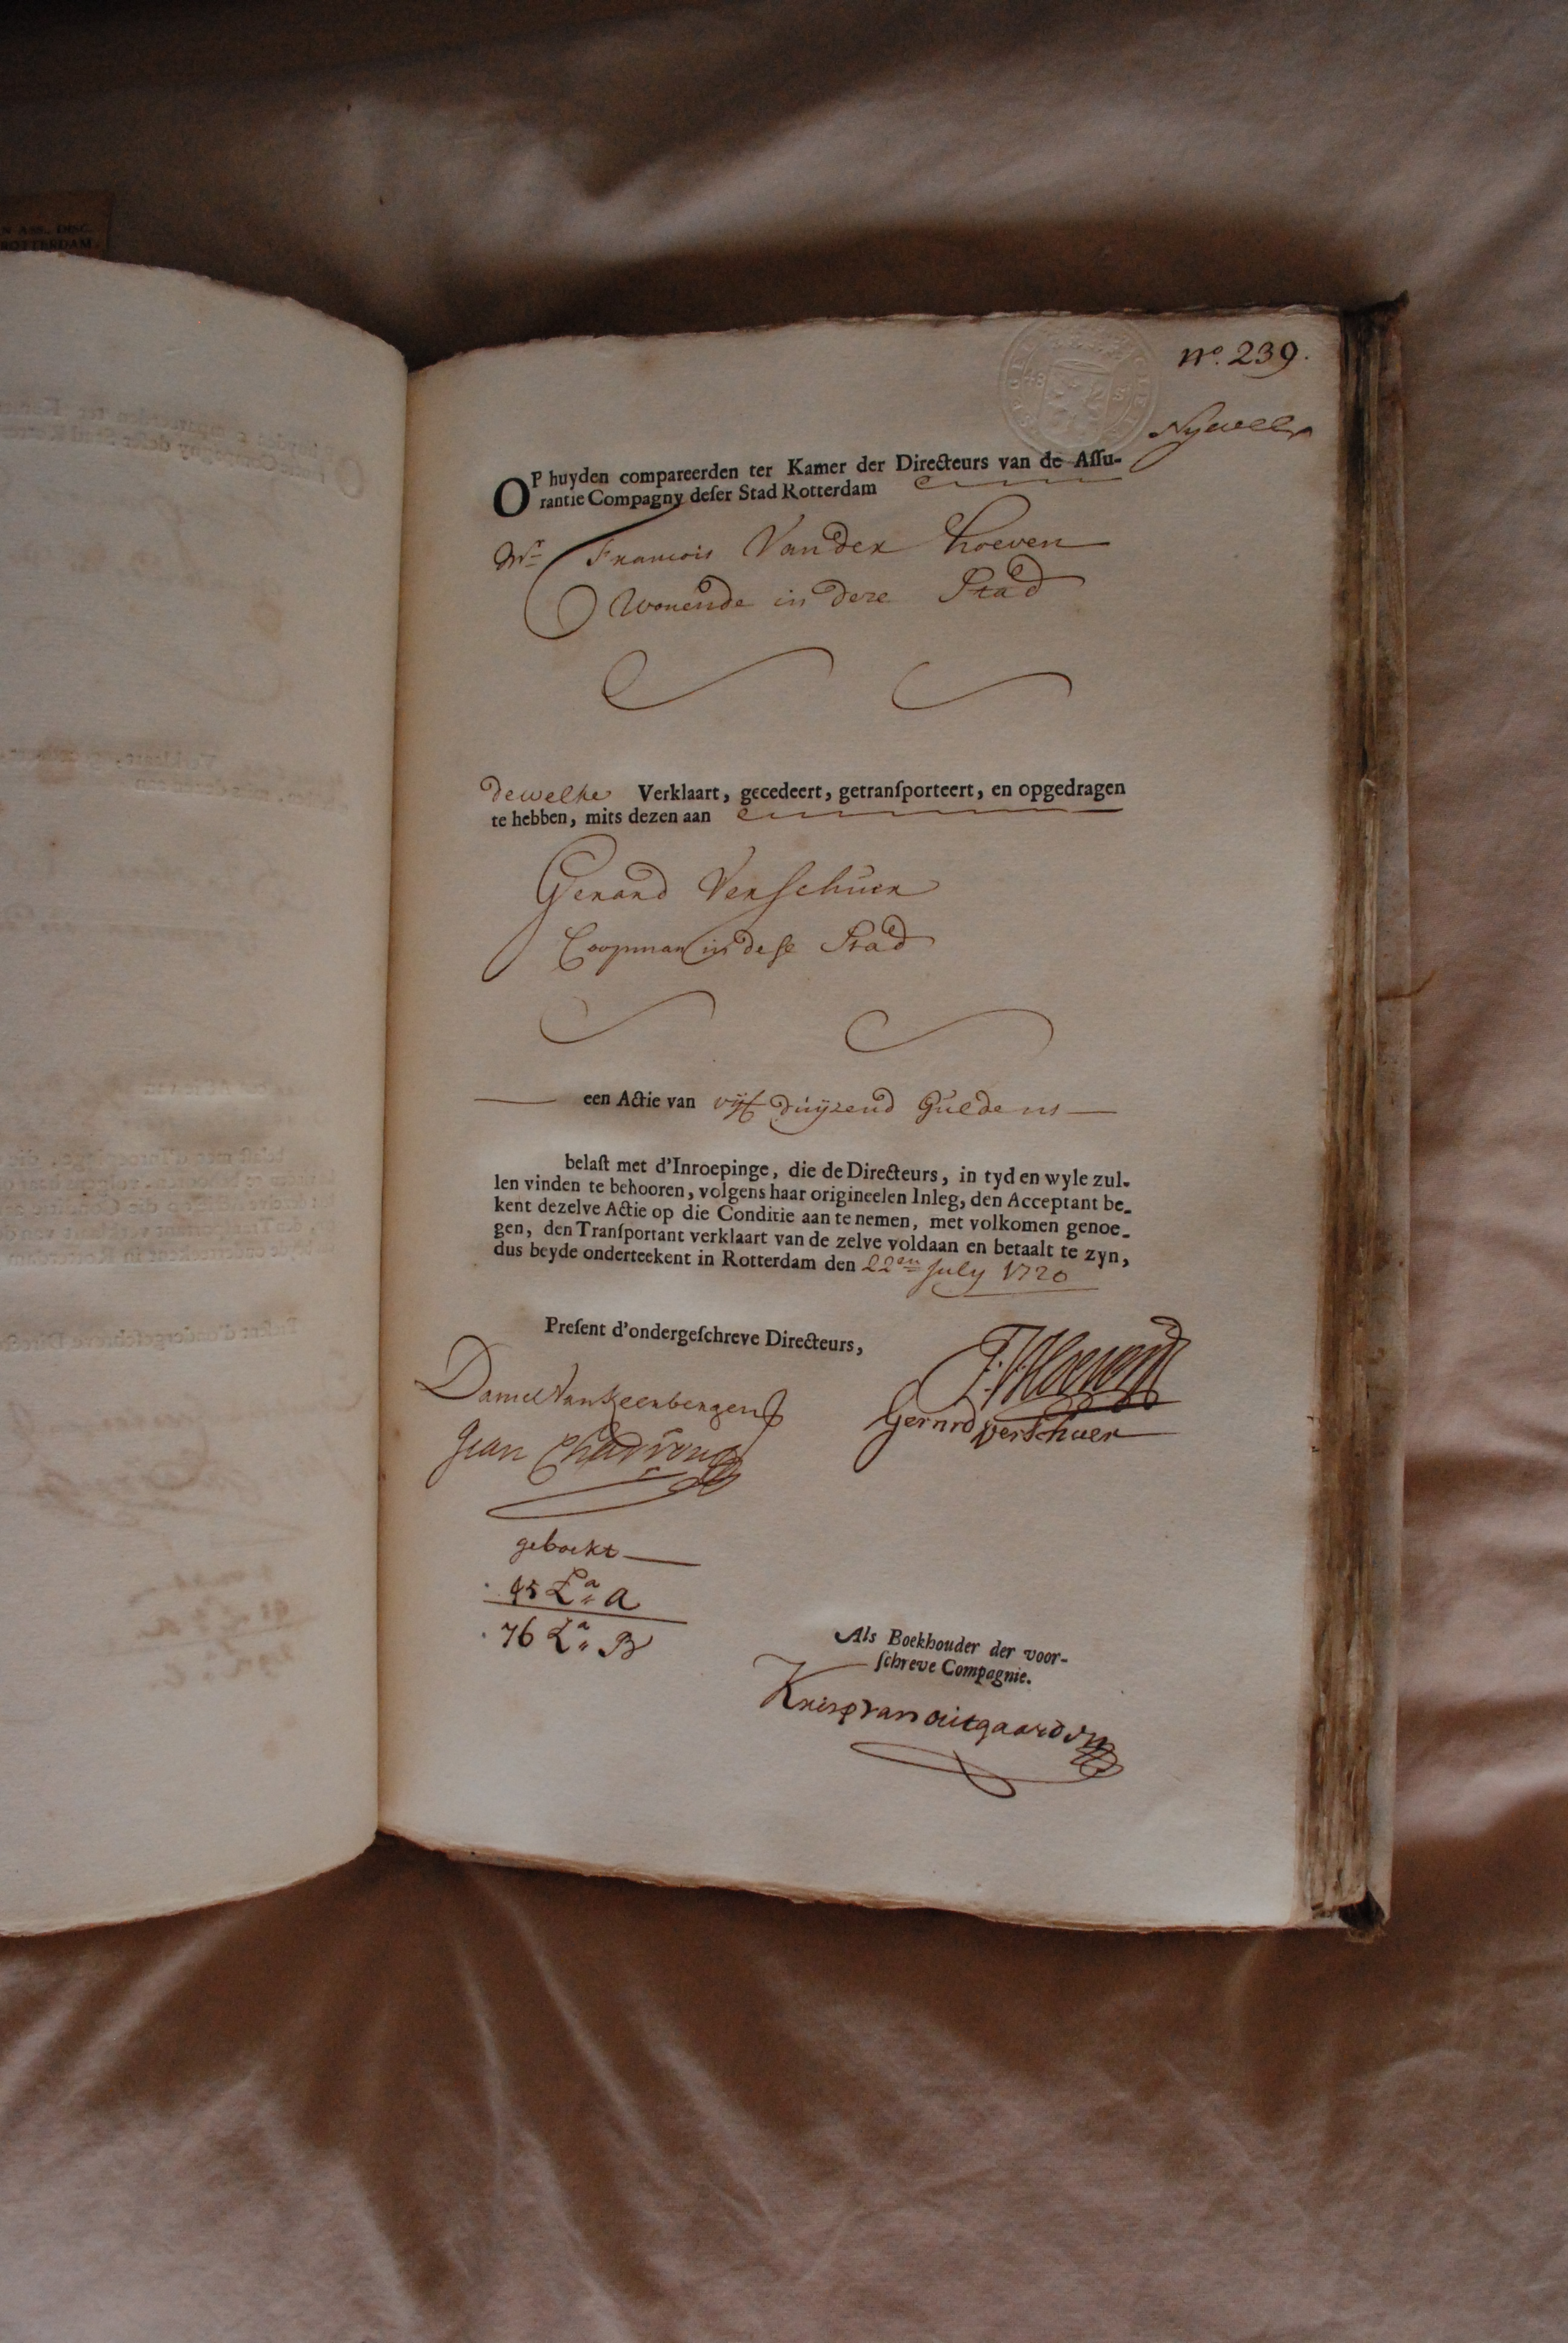 N ASS. DISC.
ROTTERDAM.
No. 239.
OP huyden compareerden ter Kamer der Directeurs van de Aſſu-
rantie Compagny deſer Stad Rotterdam
Mr Francois Vander hoeven
Wonende in deze Stad
dewelke Verklaart, gecedeert, getranſporteert, en opgedragen
te hebben, mits dezen aan
Gerard Verschuer
Coopman in dese Stad
een Actie van vijf duyzend Guldens
belaſt met d'Inroepinge, die de Directeurs, in tyd en wyle zul-
len vinden te behooren, volgens haar origineelen Inleg, den Acceptant be-
kent dezelve Actie op die Conditie aan te nemen, met volkomen genoe-
gen, den Tranſportant verklaart van de zelve voldaan en betaalt te zyn,
dus beyde onderteekent in Rotterdam den 22en July 1720
Preſent d'ondergeſchreve Directeurs,
F. V. Hoeven
Gerard Verschuer
Jean
geboekt
95 La A
76 La B
Als Boekhouder der voor-
ſchreve Compagnie.